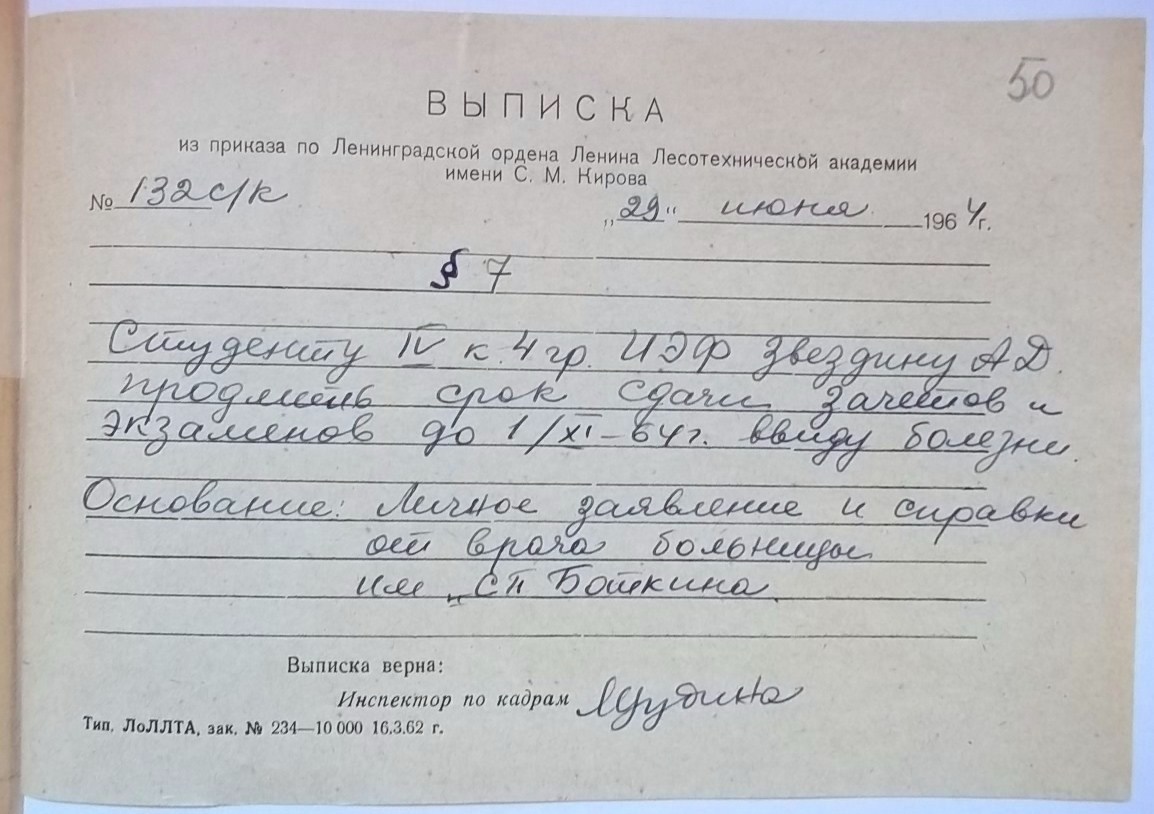 50
ВЫПИСКА
из приказа по Ленинградской ордена Ленина Лесотехнической академии
имени С. М. Кирова
№ 132 с/к „29" июня 1964 г.
§ 7
Студенту IV к. 4 гр. ИЭФ Звездину А Д.
продлить срок сдачи зачетов и
экзаменов до 1/XI-64 г. ввиду болезни.
Основание: Личное заявление и справки
от врача больницы
им „СП Боткина
Выписка верна:
Инспектор по кадрам
Тип. ЛоЛЛТА, зак. № 234—10 000 16.3.62 г.